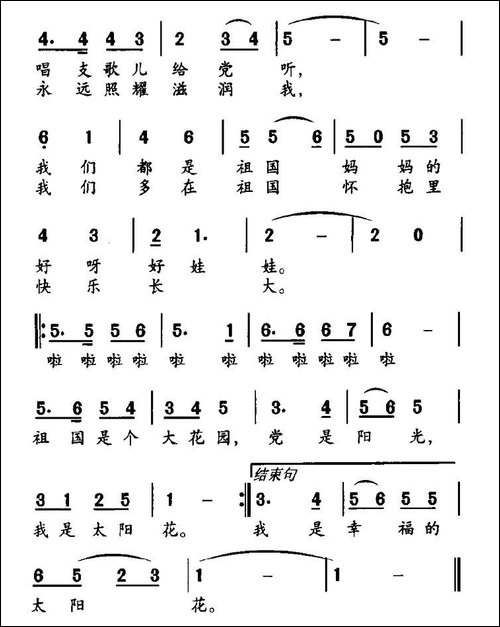 4. 4 4 3 | 2 3 4 | 5 - | 5 - |
唱支歌儿给党听，
永远照耀滋润我，
6 1 | 4 6 | 5 5 6 | 5 0 5 3 |
我们都是祖国妈妈的
我们多在祖国怀抱里
4 3 | 2 1. | 2 - | 2 0 |
好呀好娃娃。
快乐长大。
5. 5 5 6 | 5. 1 | 6. 6 6 7 | 6 - |
啦啦啦啦啦啦啦啦啦啦啦
5. 6 5 4 | 3 4 5 | 3. 4 | 5 6 5 |
祖国是个大花园，党是阳光，
结束句
3 1 2 5 | 1 - :| 3. 4 | 5 6 5 5 |
我是太阳花。我是幸福的
6 5 2 3 | 1 - | 1 - ||
太阳花。